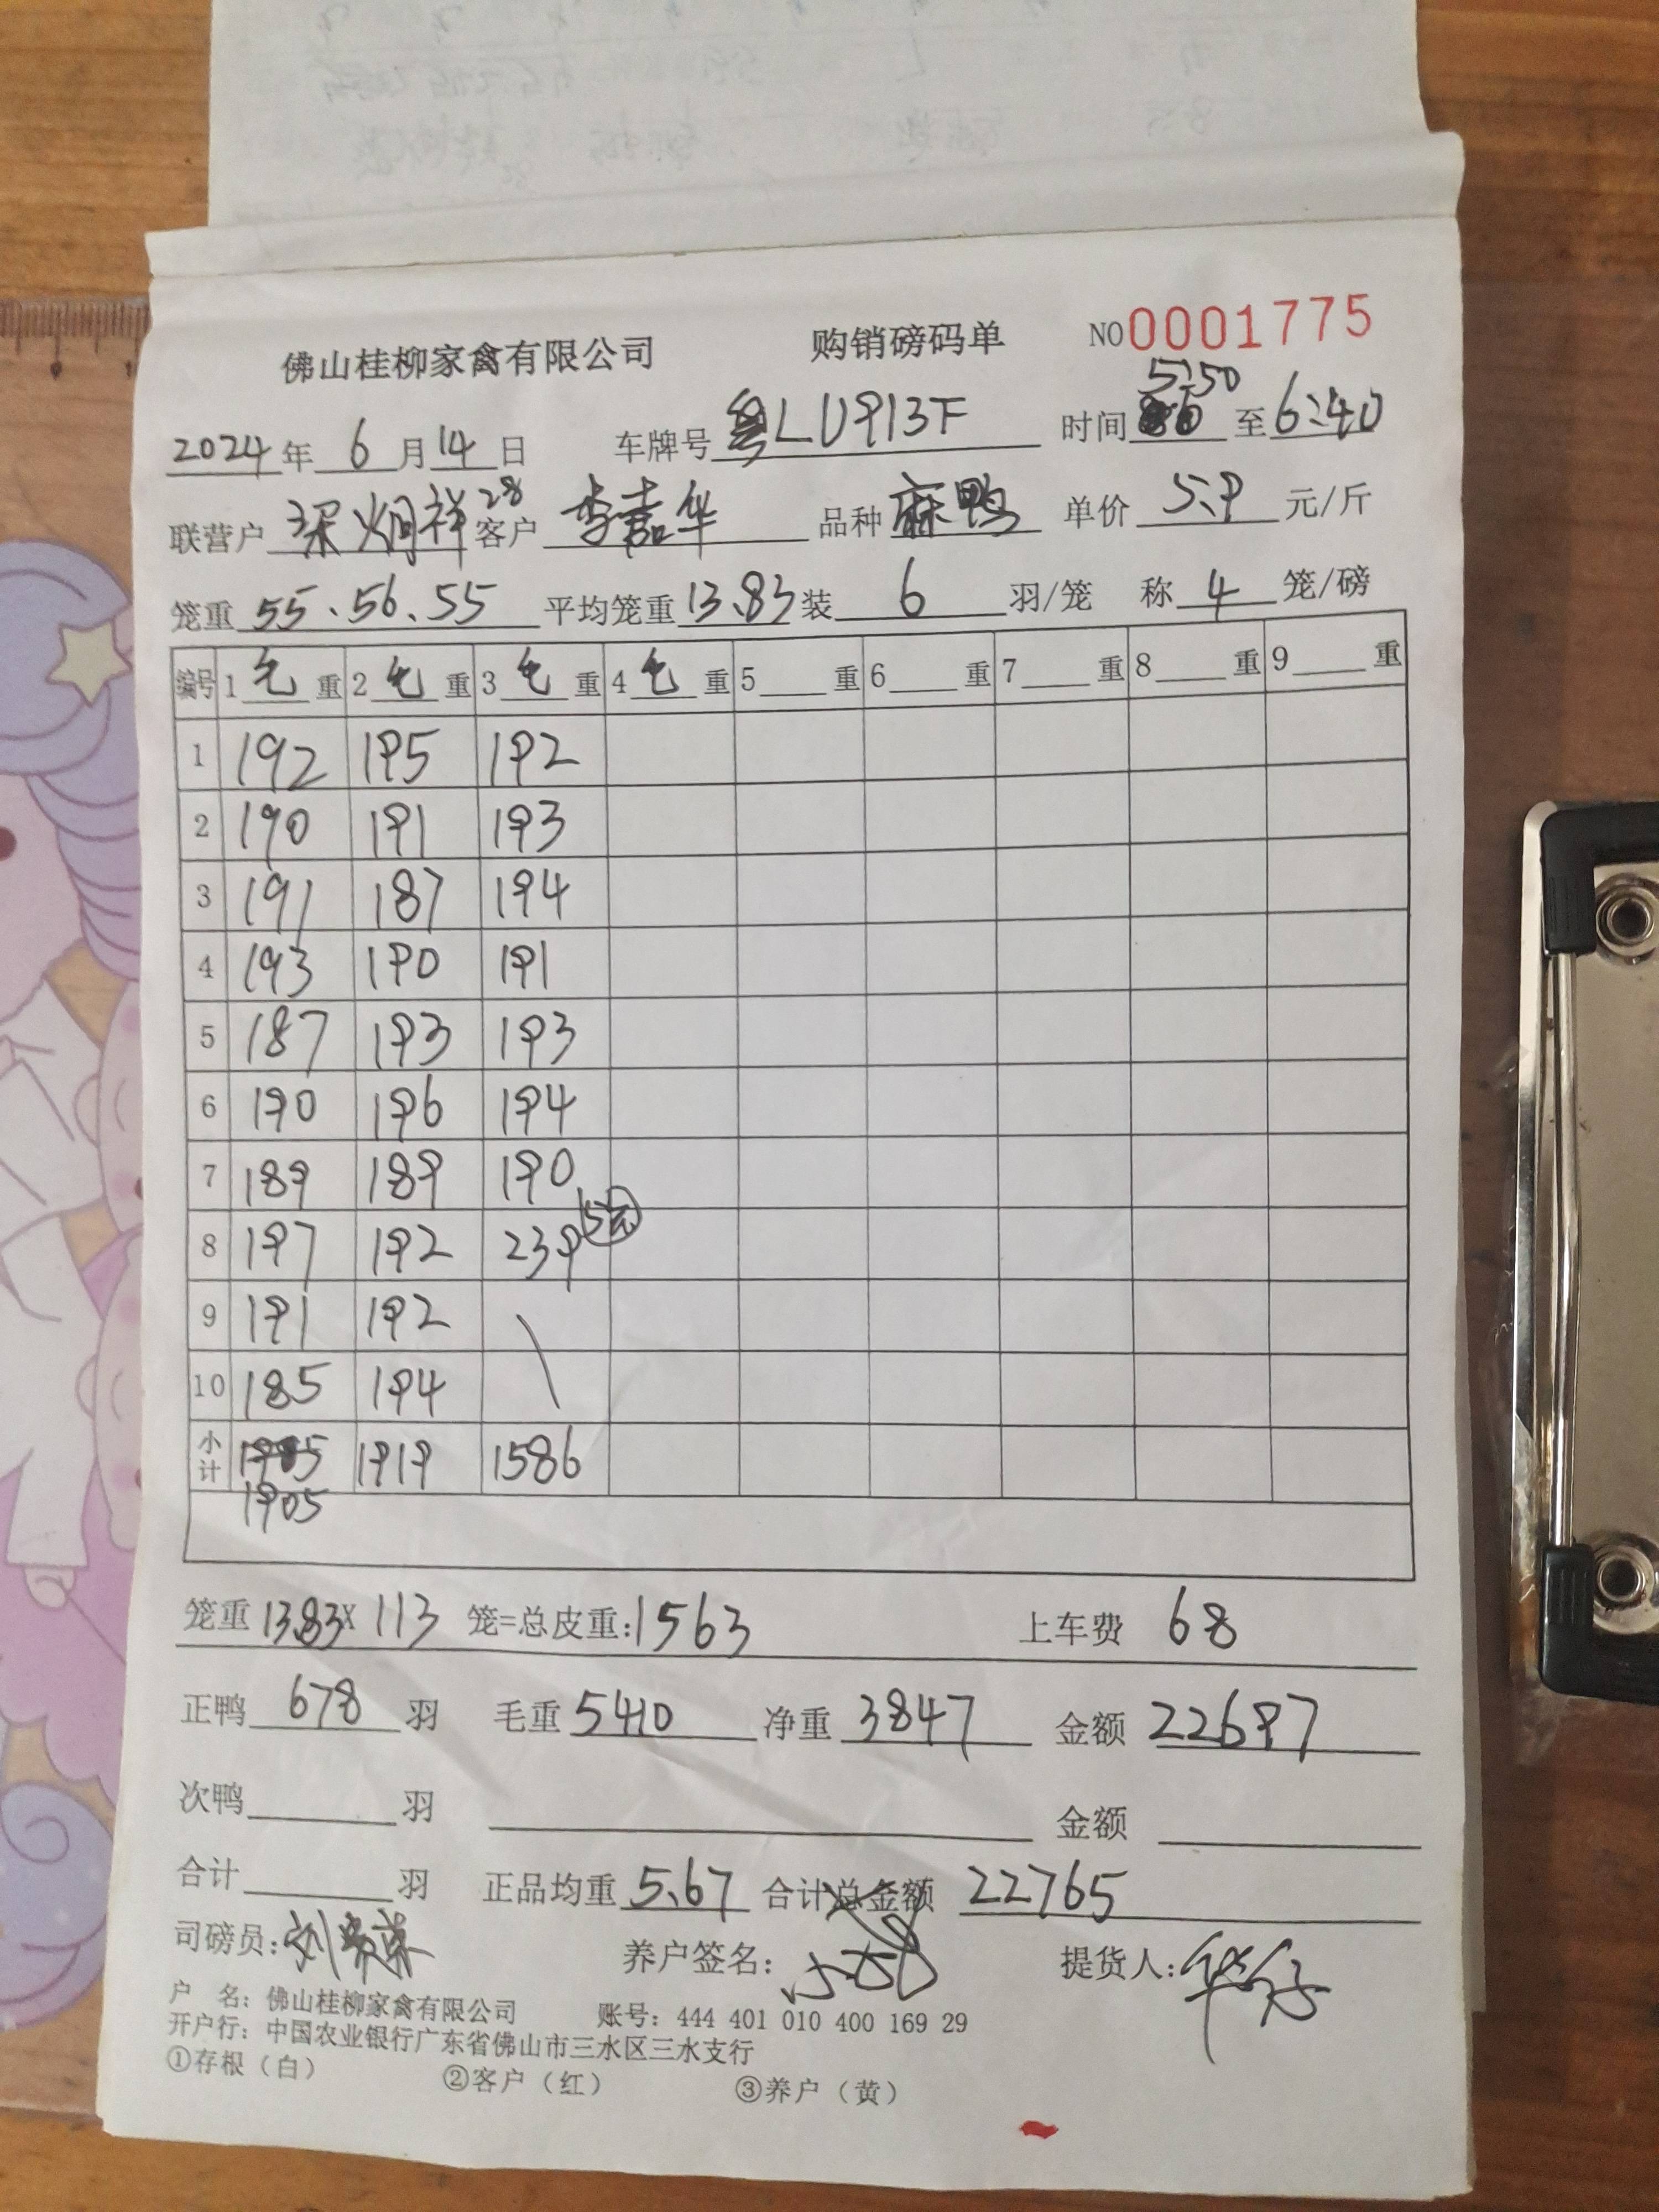 佛山桂柳家禽有限公司 购销磅码单 NO 0001775
2024年 6 月 14 日 车牌号 粤LU913F 时间 5:50 至 6:40
联营户 梁炯祥 28 客户 李嘉华 品种 麻鸭 单价 5.9 元/斤
笼重 55、56、55 平均笼重 13.83 装 6 羽/笼 称 4 笼/磅
编号 1 毛 重 2 毛 重 3 毛 重 4 毛 重 5 重 6 重 7 重 8 重 9 重
1 192 195 192
2 190 191 193
3 191 187 194
4 193 190 191
5 187 193 193
6 190 196 194
7 189 189 190
8 197 192 239 5笼
9 191 192 \
10 185 194
小计 1919 1586
1905
笼重 13.83 X 113 笼=总皮重: 1563 上车费 68
正鸭 678 羽 毛重 5410 净重 3847 金额 22697
次鸭 羽 金额
合计 羽 正品均重 5.67 合计总金额 22765
司磅员: 养户签名: 提货人:
户 名: 佛山桂柳家禽有限公司 账号: 444 401 010 400 169 29
开户行: 中国农业银行广东省佛山市三水区三水支行
①存根（白） ②客户（红） ③养户（黄）